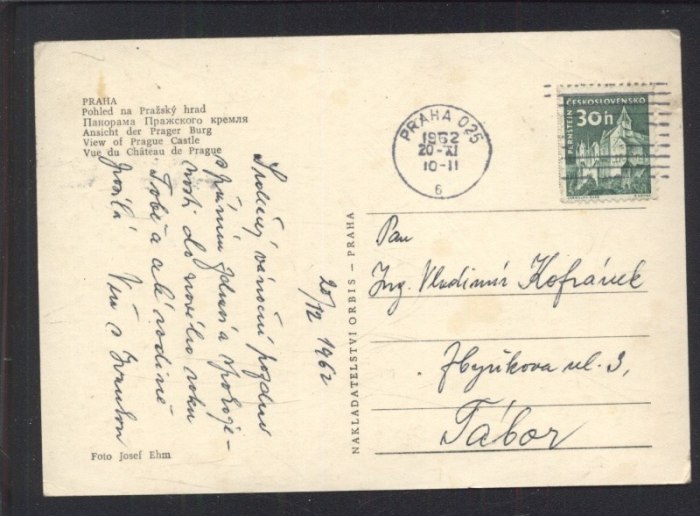 PRAHA
Pohled na Pražský hrad
Панорама Пражского кремля
Ansicht der Prager Burg
View of Prague Castle
Vue du Château de Prague
Srdečný vánoční pozdrav
s přáním zdraví a spokoje-
nosti do nového roku
Tobě a celé rodině
posílá Věra s Ivanem
20/12 1962
Foto Josef Ehm
NAKLADATELSTVÍ ORBIS – PRAHA
PRAHA 026
1962
20-XI
10-11
6
ČESKOSLOVENSKO
30h
PERNŠTEJN
Pan
Ing. Vladimír Kofránek
Zbyňkova ul. 3,
Tábor